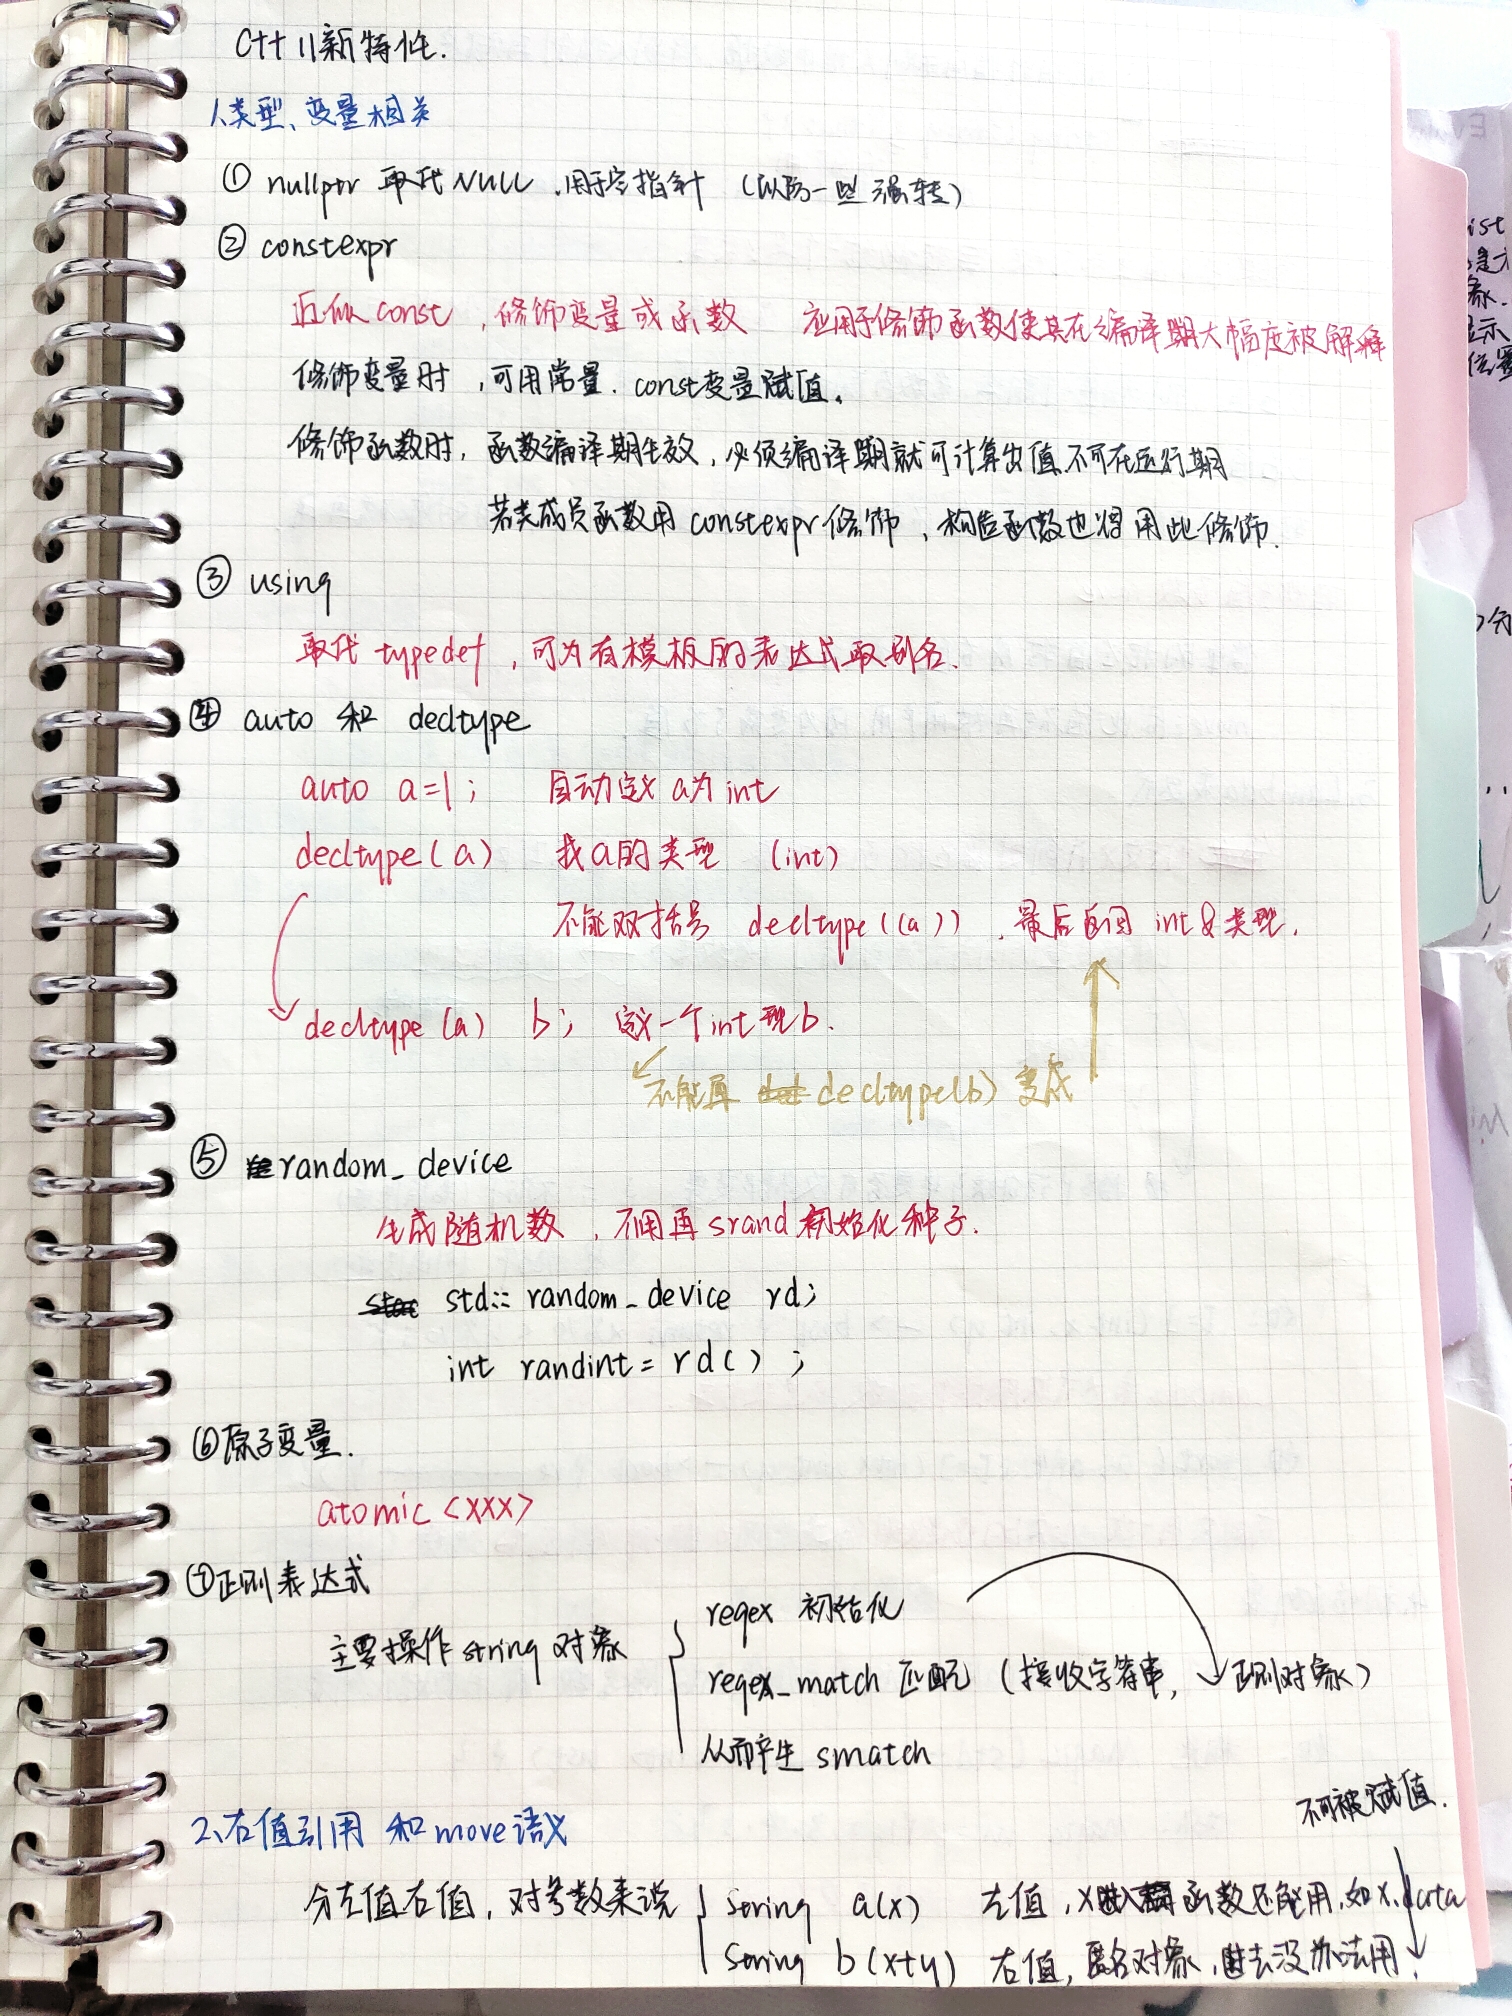 C++11新特性.
1、类型、变量相关
① nullptr 取代NULL，用于空指针 （以防一些强转）
② constexpr
近似const，修饰变量或函数 应用于修饰函数使其在编译期大幅度被解释
修饰变量时，可用常量、const变量赋值。
修饰函数时，函数编译期生效，必须编译期就可计算出值,不可在运行期
若类成员函数用constexpr修饰，构造函数也将用此修饰.
③ using
取代 typedef，可为有模板的表达式取别名.
④ auto 和 decltype
auto a=1; 自动定义a为int
decltype(a) 找a的类型 (int)
不能双括号 decltype((a))，最后返回 int&类型.
decltype(a) b; 定义一个int型b.
不能再 decltype(b) 变成
⑤ random_device
生成随机数，不用再srand初始化种子.
std::random_device rd;
int randint = rd();
⑥原子变量.
atomic<xxx>
⑦正则表达式
regex 初始化
主要操作string对象
regex_match 匹配 (接收字符串, 正则对象)
从而产生 smatch
不可被赋值.
2、右值引用 和move语义
分左值右值，对参数来说
string a(x) 左值，x进入函数还能用,如x.data
string b(x+y) 右值，匿名对象，进去没办法用.